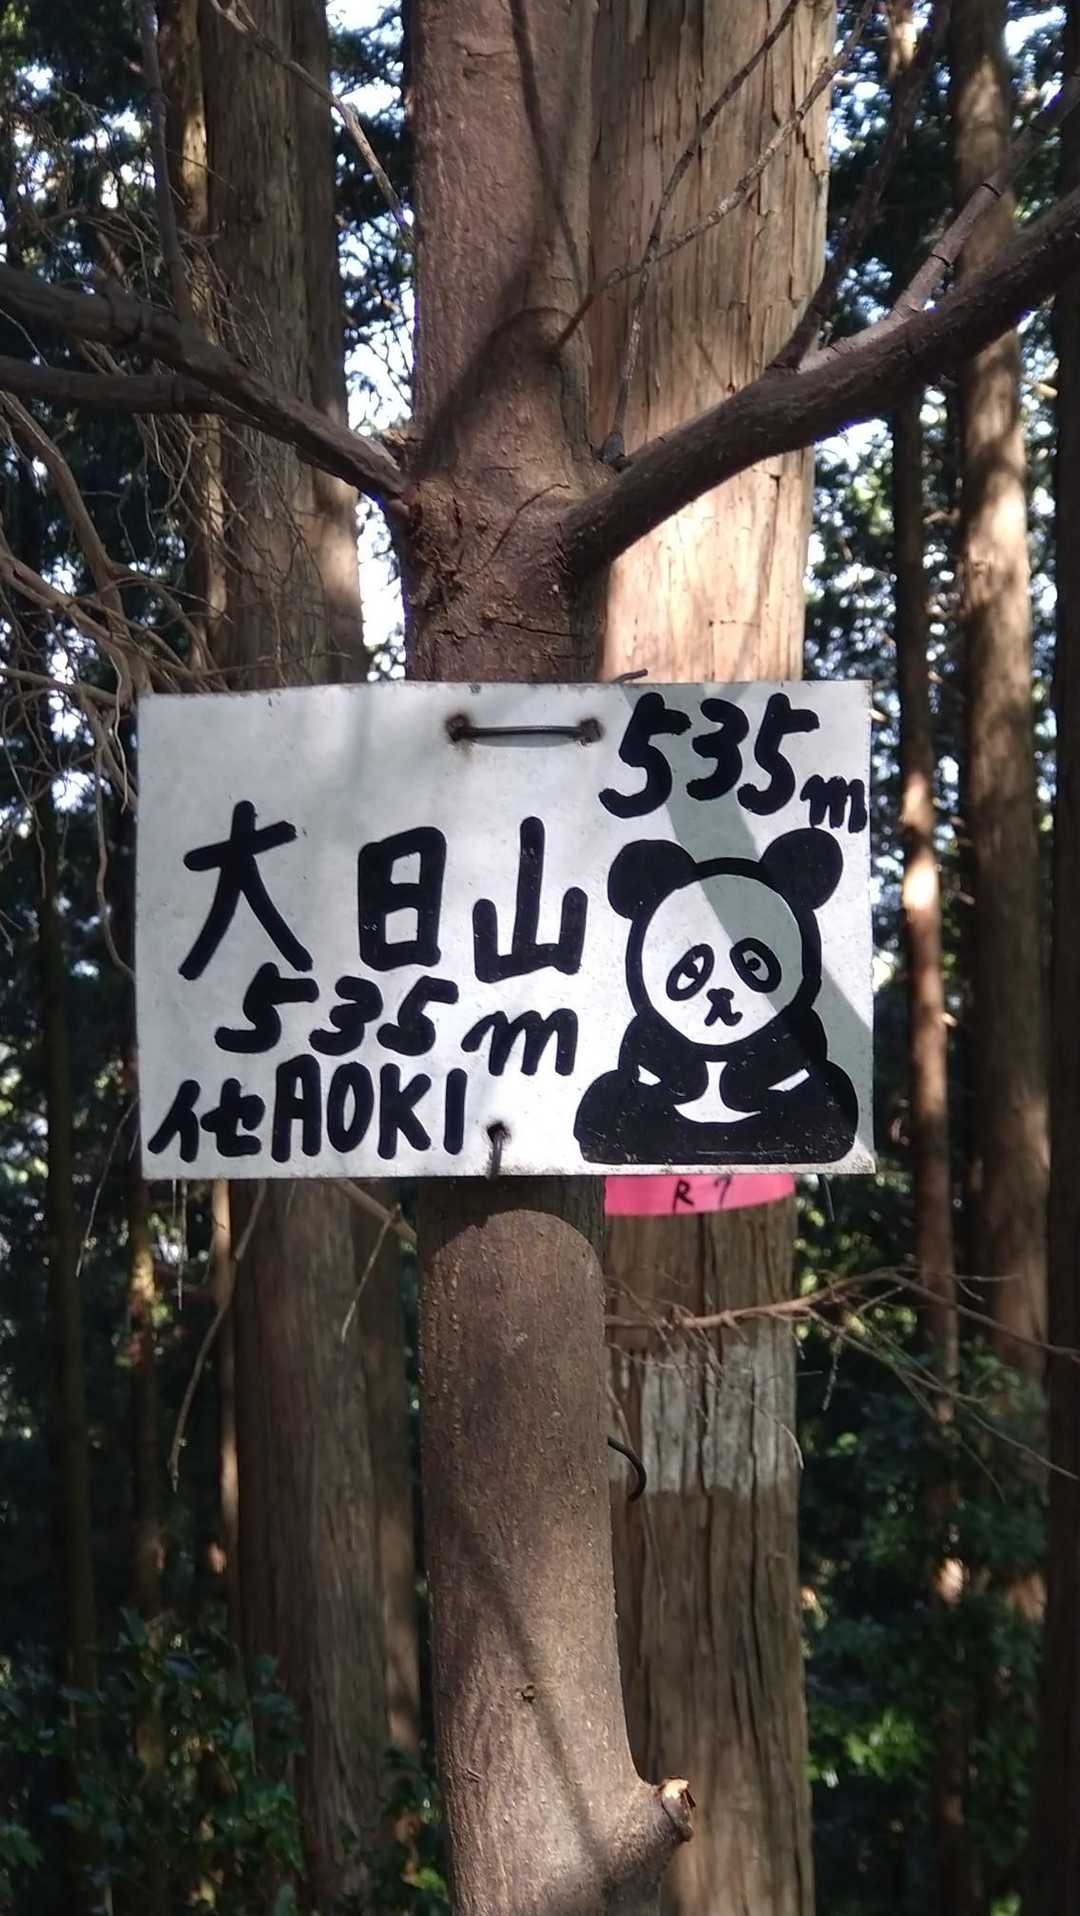 535m
大日山
535m
イセAOKI
R7